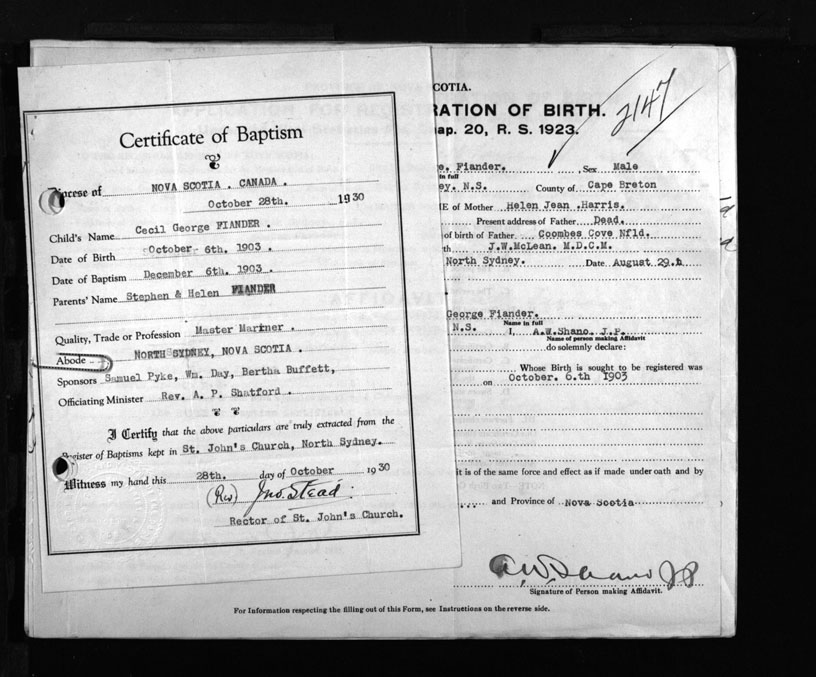 Certificate of Baptism
Diocese of NOVA SCOTIA . CANADA .
October 28th. 1930
Child's Name Cecil George FIANDER .
Date of Birth October 6th. 1903 .
Date of Baptism December 6th. 1903 .
Parents' Name Stephen & Helen FIANDER
Quality, Trade or Profession Master Mariner .
Abode NORTH SYDNEY, NOVA SCOTIA .
Sponsors Samuel Pyke, Wm. Day, Bertha Buffett,
Officiating Minister Rev. A. P. Shatford .
I Certify that the above particulars are truly extracted from the
Register of Baptisms kept in St. John's Church, North Sydney.
Witness my hand this 28th. day of October 1930
(Rev) Jno. Stead.
Rector of St. John's Church.
COTIA.
RATION OF BIRTH.
ap. 20, R. S. 1923.
2147
e. Fiander. Sex Male
in full
ey. N.S. County of Cape Breton
E of Mother Helen Jean .Harris.
Present address of Father Dead.
of birth of Father. Coombes Cove Nfld.
th J.W.McLean. M.D.C.M.
North Sydney. Date August 29.
George Fiander.
Name in full
N.S. I, A.W.Shano, J.P.
Name of person making Affidavit
do solemnly declare:
Whose Birth is sought to be registered was
on October. 6.th 1903
it is of the same force and effect as if made under oath and by
and Province of Nova Scotia
A.W. Shano JP
Signature of Person making Affidavit.
For Information respecting the filling out of this Form, see Instructions on the reverse side.